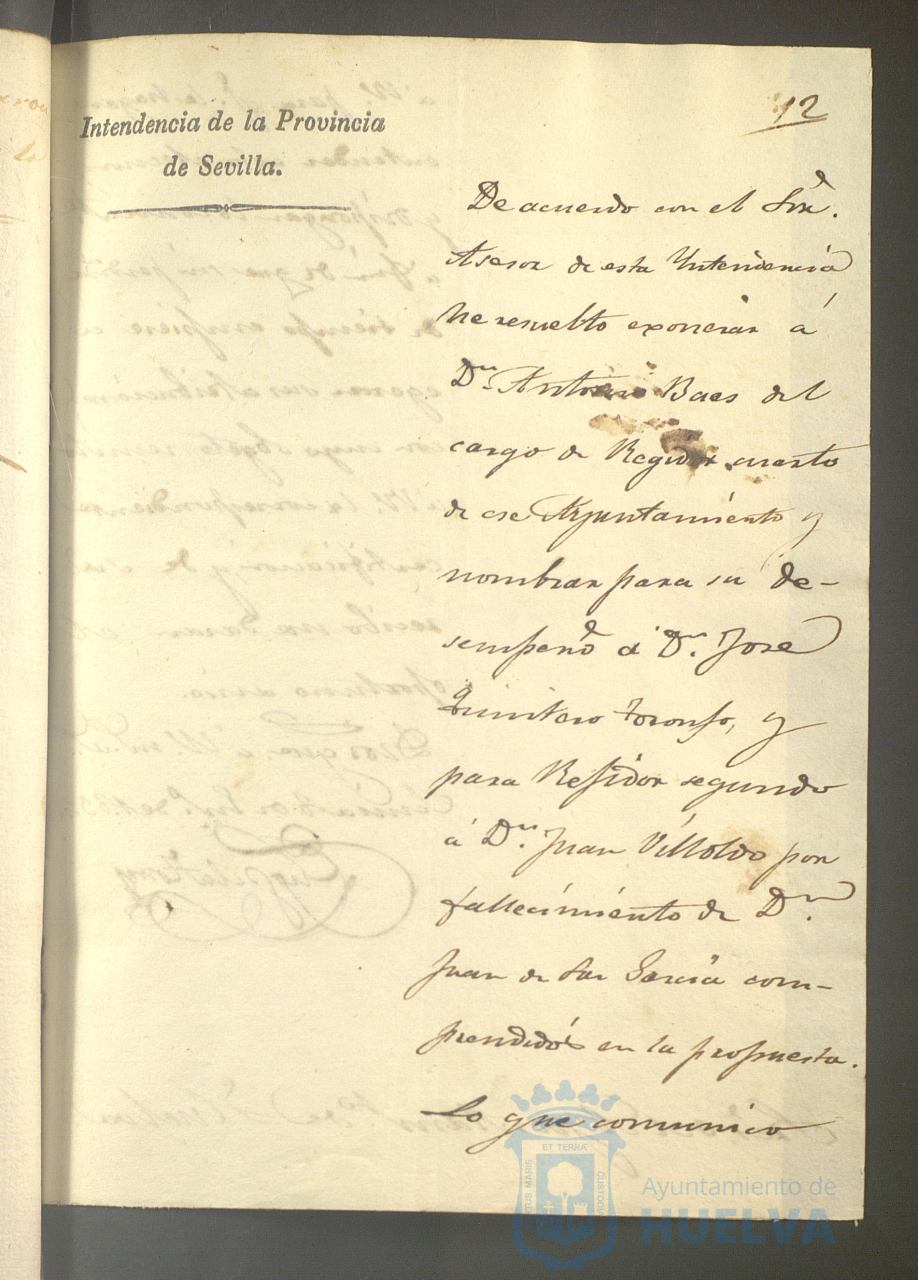 Intendencia de la Provincia
de Sevilla.
12
De acuerdo con el Sor.
Asesor de esta Intendencia
he resuelto exonerar á
Dn. Antonio Baes del
cargo de Regidor cuarto
de ese Ayuntamiento y
nombrar para su de-
sempeño á Dn. José
Quintero, y
para Regidor segundo
á Dn. Juan Villoldo por
fallecimiento de Dn.
Juan de García com-
prendidos en la propuesta.
Lo que comunico
ET TERRA
CUSTODIA
PORTUS MARIS
Ayuntamiento de
HUELVA